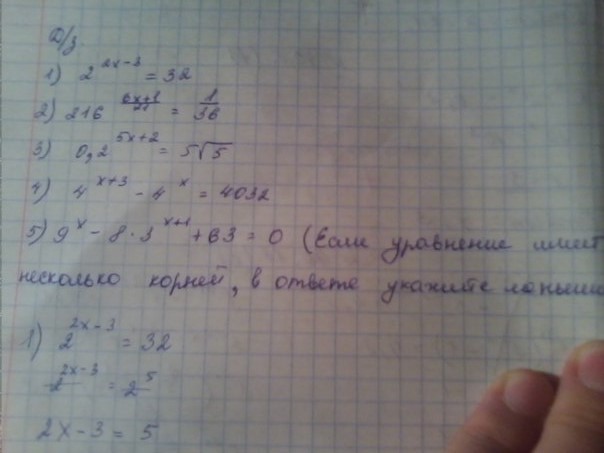 Д/з.
1) 2^(2x-3) = 32
2) 216^((6x+1)/21) = 1/36
3) 0,2^(5x+2) = 5√5
4) 4^(x+3) - 4^x = 4032
5) 9^x - 8·3^(x+1) + 63 = 0 (Если уравнение имеет
несколько корней, в ответе укажите
1) 2^(2x-3) = 32
2^(2x-3) = 2^5
2x-3 = 5